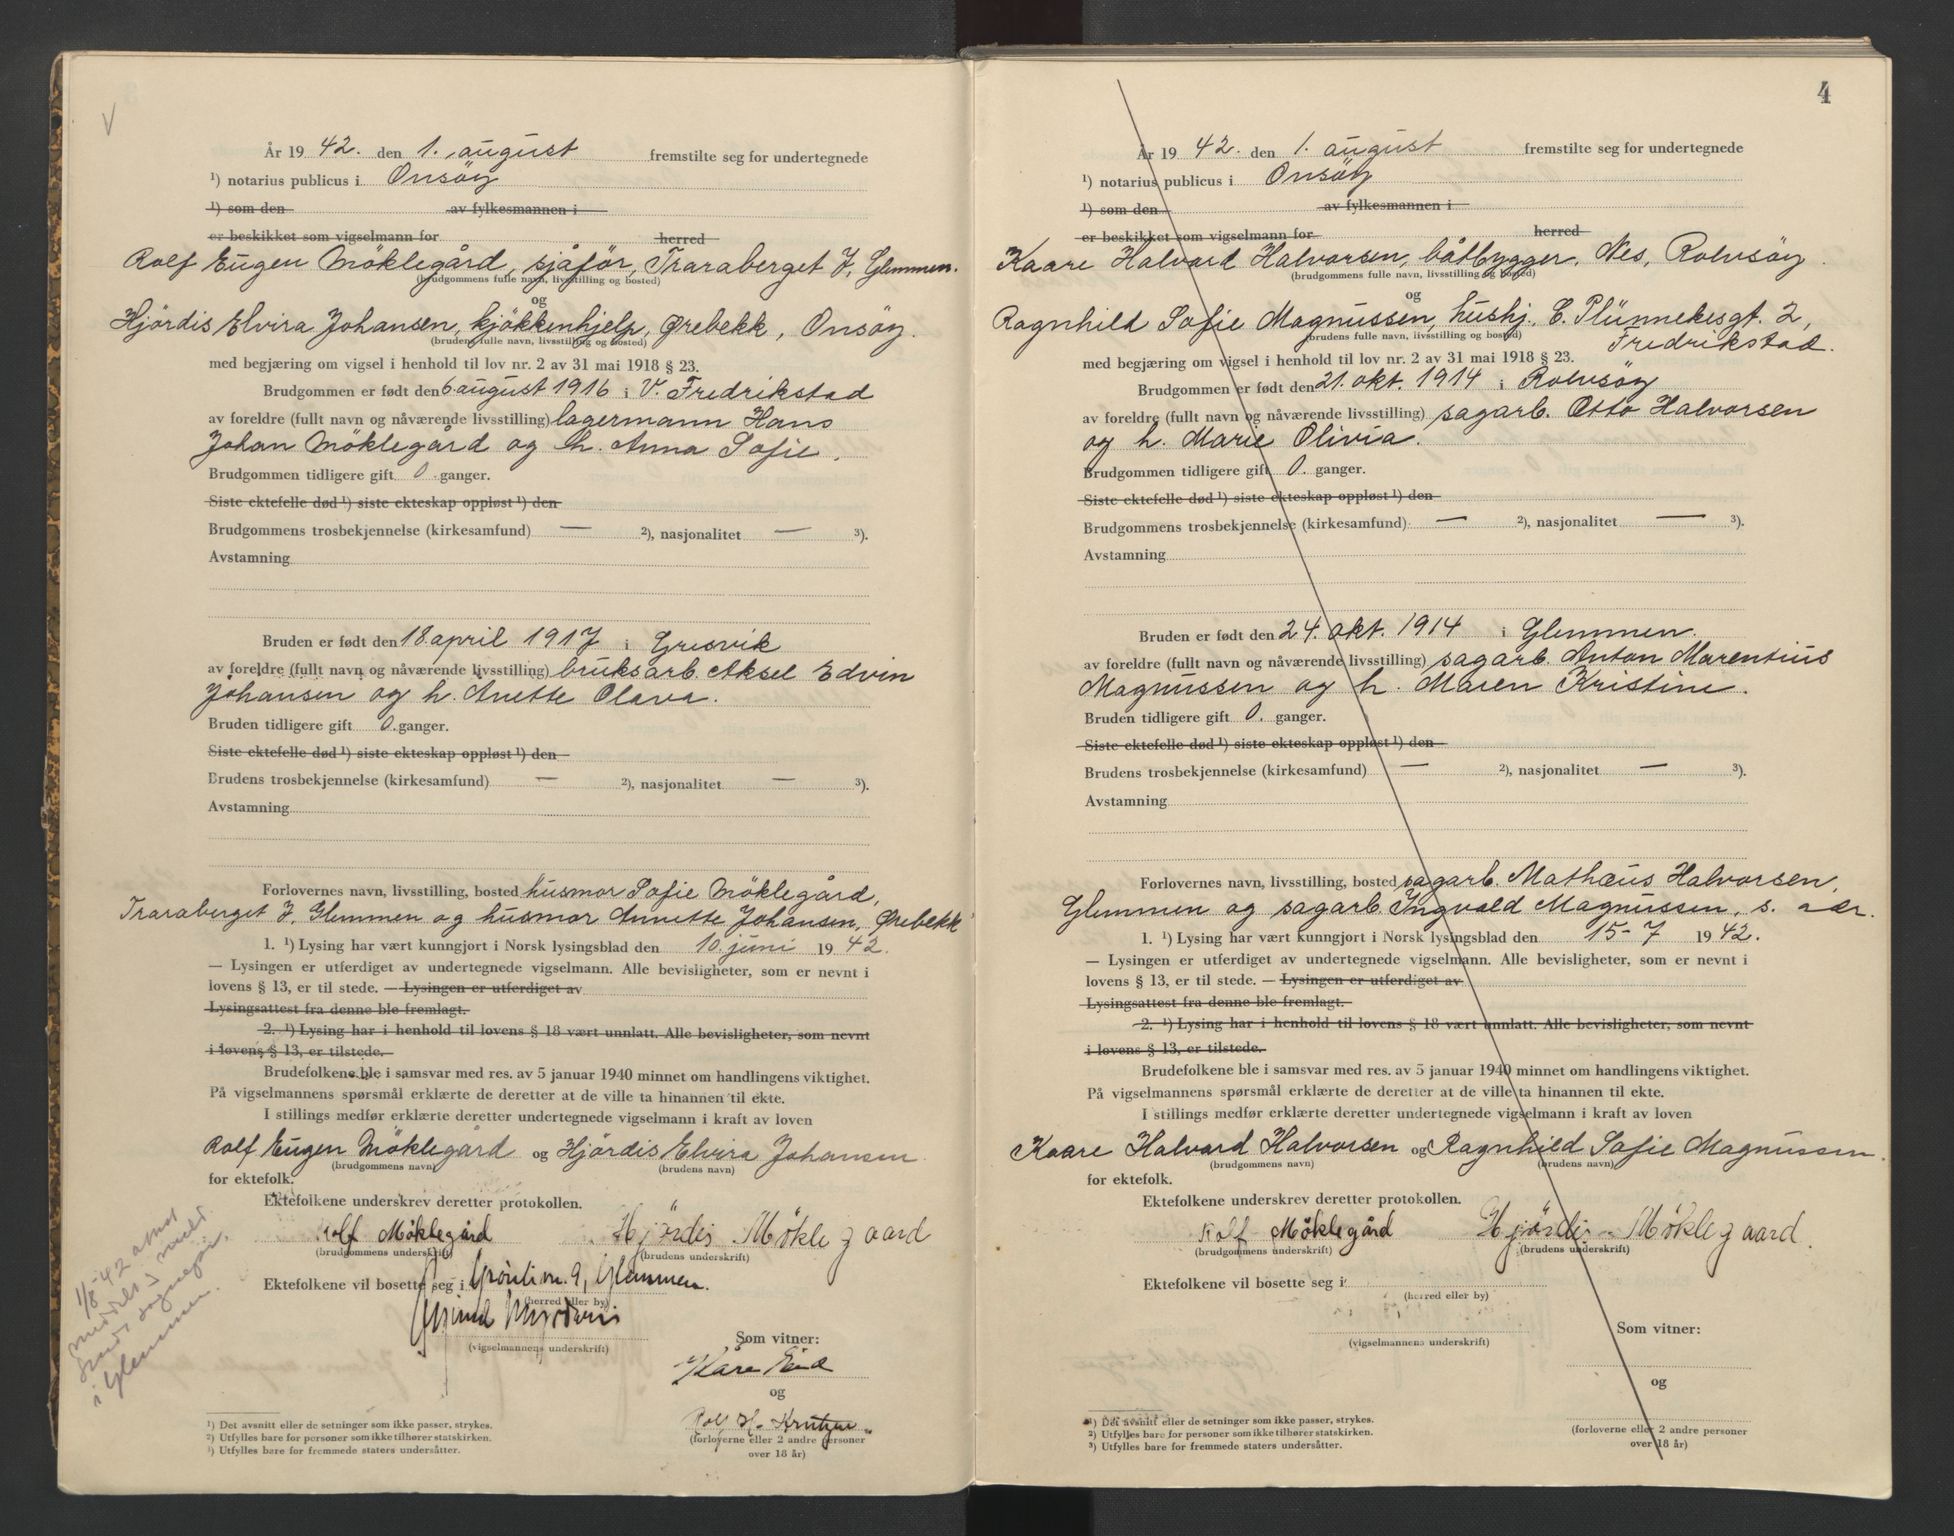 År 19 42. den 1. august fremstilte seg for undertegnede
¹) notarius publicus i Onsöy
¹) som den av fylkesmannen i
er beskikket som vigselmann for herred
Rolf Eugen Möklegård, sjåför, Traraberget 7, Glemmen.
(brudgommens fulle navn, livsstilling og bosted)
og
Hjördis Elvira Johansen, kjökkenhjelp, Ørebekk, Onsöy.
(brudens fulle navn, livsstilling og bosted)
med begjæring om vigsel i henhold til lov nr. 2 av 31 mai 1918 § 23.
Brudgommen er født den 6 august 1916 i V. Fredrikstad
av foreldre (fullt navn og nåværende livsstilling) lagermann Hans
Johan Möklegård og h. Anna Sofie.
Brudgommen tidligere gift 0 ganger.
Siste ektefelle død ¹) siste ekteskap oppløst ¹) den
Brudgommens trosbekjennelse (kirkesamfund) — ²), nasjonalitet — ³).
Avstamning
Bruden er født den 18. april 1917 i Gresvik
av foreldre (fullt navn og nåværende livsstilling) bruksarb. Aksel Edvin
Johansen og h. Anette Olava.
Bruden tidligere gift 0. ganger.
Siste ektefelle død ¹) siste ekteskap oppløst ¹) den
Brudens trosbekjennelse (kirkesamfund) — ²), nasjonalitet — ³).
Avstamning
Forlovernes navn, livsstilling, bosted husmor Sofie Möklegård,
Traraberget 7, Glemmen og husmor Annette Johansen, Ørebekk
1. ¹) Lysing har vært kunngjort i Norsk lysingsblad den 10. juni 19 42.
— Lysingen er utferdiget av undertegnede vigselmann. Alle bevisligheter, som er nevnt i
lovens § 13, er til stede. — Lysingen er utferdiget av
Lysingsattest fra denne ble fremlagt.
2. ¹) Lysing har i henhold til lovens § 18 vært unnlatt. Alle bevisligheter, som nevnt
i lovens § 13, er tilstede.
Brudefolkene ble i samsvar med res. av 5 januar 1940 minnet om handlingens viktighet.
På vigselmannens spørsmål erklærte de deretter at de ville ta hinannen til ekte.
I stillings medfør erklærte deretter undertegnede vigselmann i kraft av loven
Rolf Eugen Möklegård og Hjördis Elvira Johansen
(brudgommens navn) (brudens navn)
for ektefolk.
Ektefolkene underskrev deretter protokollen.
Rolf Möklegård Hjördis Møklegaard
(brudgommens underskrift) (brudens underskrift)
Ektefolkene vil bosette seg i Grönlivn. 9, Glemmen.
(herred eller by)
(vigselmannens underskrift)
Som vitner:
Kåre
og
Rolf H.
(forloverne eller 2 andre personer
over 18 år)
1/8-42
i Glemmen.
¹) Det avsnitt eller de setninger som ikke passer, strykes.
²) Utfylles bare for personer som ikke tilhører statskirken.
³) Utfylles bare for fremmede staters undersåtter.
4
År 19 42. den 1. august fremstilte seg for undertegnede
¹) notarius publicus i Onsöy
¹) som den av fylkesmannen i
er beskikket som vigselmann for herred
Kaare Halvard Halvorsen, båtbygger, Nes, Rolvsöy.
(brudgommens fulle navn, livsstilling og bosted)
og
Ragnhild Sofie Magnussen, hushj. C. Plünnekesgt. 2,
(brudens fulle navn, livsstilling og bosted) Fredrikstad.
med begjæring om vigsel i henhold til lov nr. 2 av 31 mai 1918 § 23.
Brudgommen er født den 21. okt. 1914 i Rolvsöy
av foreldre (fullt navn og nåværende livsstilling) sagarb. Otto Halvorsen
og h. Marie Olivia.
Brudgommen tidligere gift 0. ganger.
Siste ektefelle død ¹) siste ekteskap oppløst ¹) den
Brudgommens trosbekjennelse (kirkesamfund) — ²), nasjonalitet — ³).
Avstamning
Bruden er født den 24. okt. 1914 i Glemmen.
av foreldre (fullt navn og nåværende livsstilling) sagarb. Anton Marentius
Magnussen og h. Maren Kristine.
Bruden tidligere gift 0. ganger.
Siste ektefelle død ¹) siste ekteskap oppløst ¹) den
Brudens trosbekjennelse (kirkesamfund) — ²), nasjonalitet — ³).
Avstamning
Forlovernes navn, livsstilling, bosted sagarb. Mathæus Halvorsen,
Glemmen og sagarb. Ingvald Magnussen, s. adr.
1. ¹) Lysing har vært kunngjort i Norsk lysingsblad den 15-7 19 42.
— Lysingen er utferdiget av undertegnede vigselmann. Alle bevisligheter, som er nevnt i
lovens § 13, er til stede. — Lysingen er utferdiget av
Lysingsattest fra denne ble fremlagt.
2. ¹) Lysing har i henhold til lovens § 18 vært unnlatt. Alle bevisligheter, som nevnt
i lovens § 13, er tilstede.
Brudefolkene ble i samsvar med res. av 5 januar 1940 minnet om handlingens viktighet.
På vigselmannens spørsmål erklærte de deretter at de ville ta hinannen til ekte.
I stillings medfør erklærte deretter undertegnede vigselmann i kraft av loven
Kaare Halvard Halvorsen og Ragnhild Sofie Magnussen.
(brudgommens navn) (brudens navn)
for ektefolk.
Ektefolkene underskrev deretter protokollen.
Rolf Möklegård Hjördis Møklegaard.
(brudgommens underskrift) (brudens underskrift)
Ektefolkene vil bosette seg i
(herred eller by)
(vigselmannens underskrift)
Som vitner:
og
(forloverne eller 2 andre personer
over 18 år)
¹) Det avsnitt eller de setninger som ikke passer, strykes.
²) Utfylles bare for personer som ikke tilhører statskirken.
³) Utfylles bare for fremmede staters undersåtter.